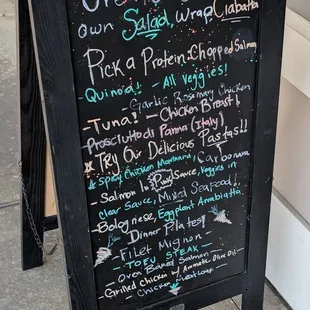 own Salad, Wrap, Ciabatta
Pick a Protein: Chopped Salmon
Quinoa! - All Veggies!
- Garlic Rosemary Chicken
- Tuna! - Chicken Breast!
- Prosciutto di Parma (Italy)
Try Our Delicious Pastas!!
Spicy Chicken Marinara, Carbonara
- Salmon in Pink Sauce, Veggies in
Clear Sauce, Mixed Seafood!
Bolognese, Eggplant Arrabiatta
Dinner Plates!
- Filet Mignon
- TOFU STEAK
- Oven Baked Salmon
- Grilled chicken w/ Aromatic Olive Oil
- Chicken Meatloaf